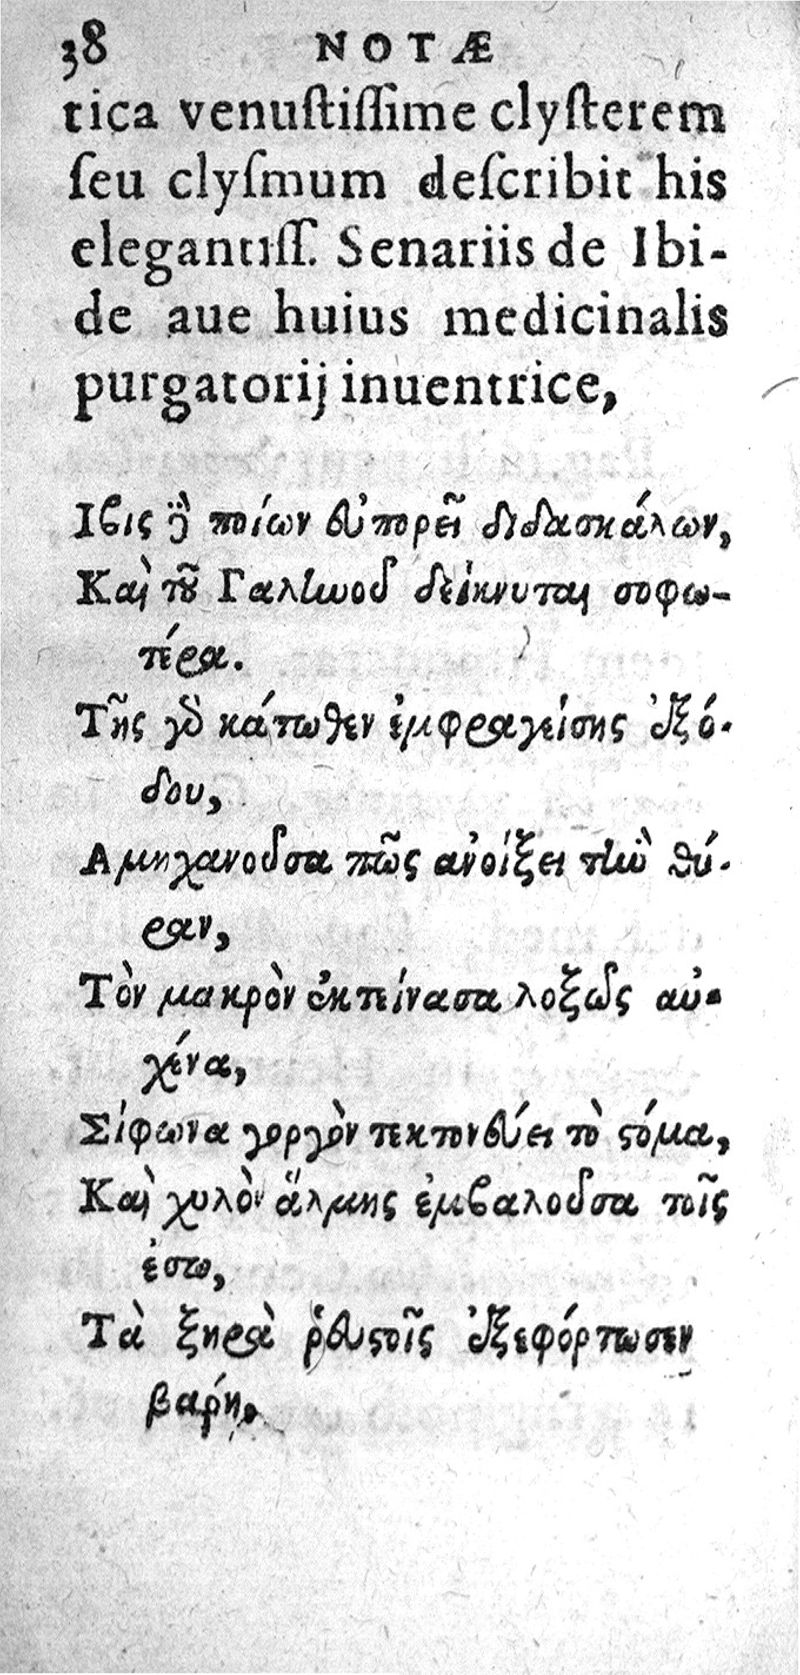 38 NOTÆ
tica venustissime clysterem
seu clysmum describit his
elegantiss. Senariis de Ibi-
de aue huius medicinalis
purgatorij inuentrice,
Ιβις δὲ ποίων εὐπορεῖ διδασκάλων,
Καὶ τοῦ Γαλίωοῦ δείκνυται σοφω-
τέρα.
Τῆς γὰρ κάτωθεν ἐμφραγείσης ἐξό-
δου,
Αμηχανοῦσα πῶς ἀνοίξει τὴν θύ-
ραν,
Τὸν μακρὸν ἐκτείνασα λοξῶς αὐ-
χένα,
Σίφωνα γοργὸν τεκτονεύει τὸ στόμα,
Καὶ χυλὸν ἅλμης ἐμβαλοῦσα τοῖς
ἔσω,
Τὰ ξηρὰ ῥευστοῖς ἐξεφόρτωσεν
βαρη.